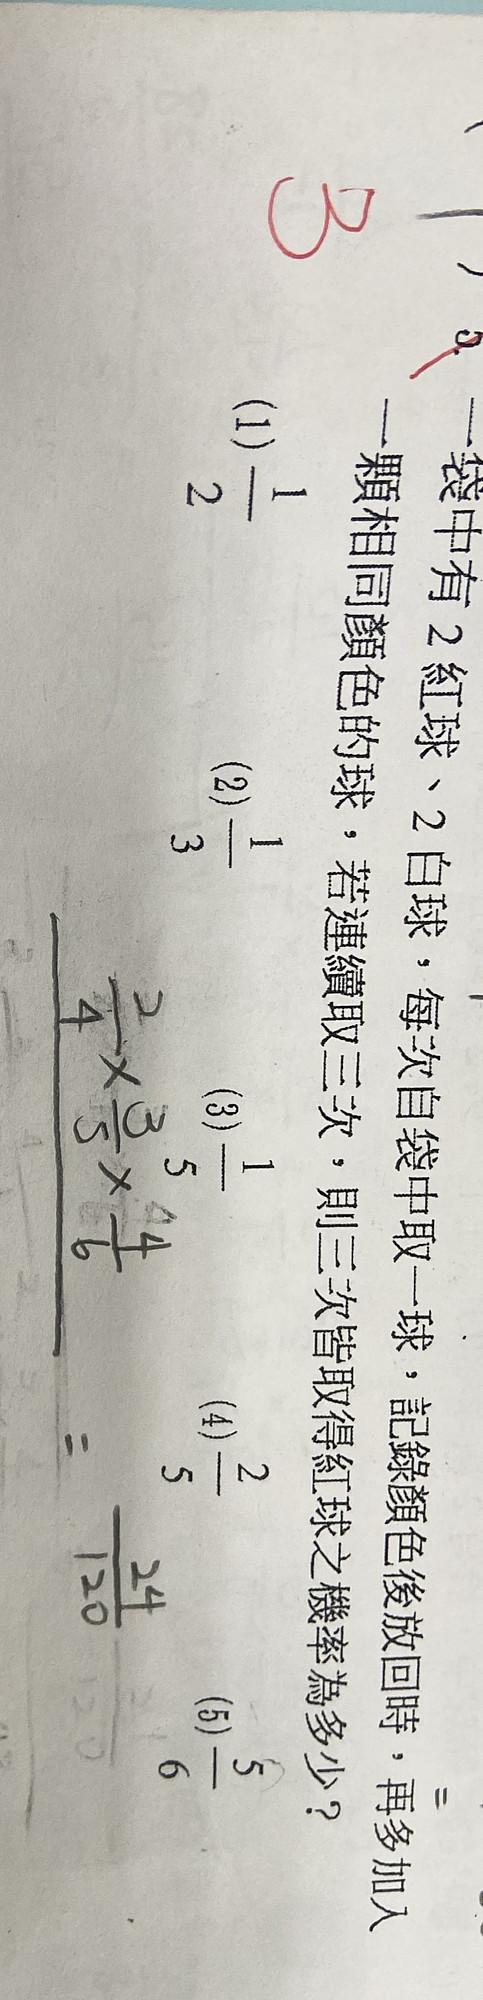 ( 1 ) 5. 一袋中有2紅球、2白球，每次自袋中取一球，記錄顏色後放回時，再多加入
一顆相同顏色的球，若連續取三次，則三次皆取得紅球之機率為多少？
3
(1) 1/2 (2) 1/3 (3) 1/5 (4) 2/5 (5) 5/6
2/4 × 3/5 × 4/6 = 24/120